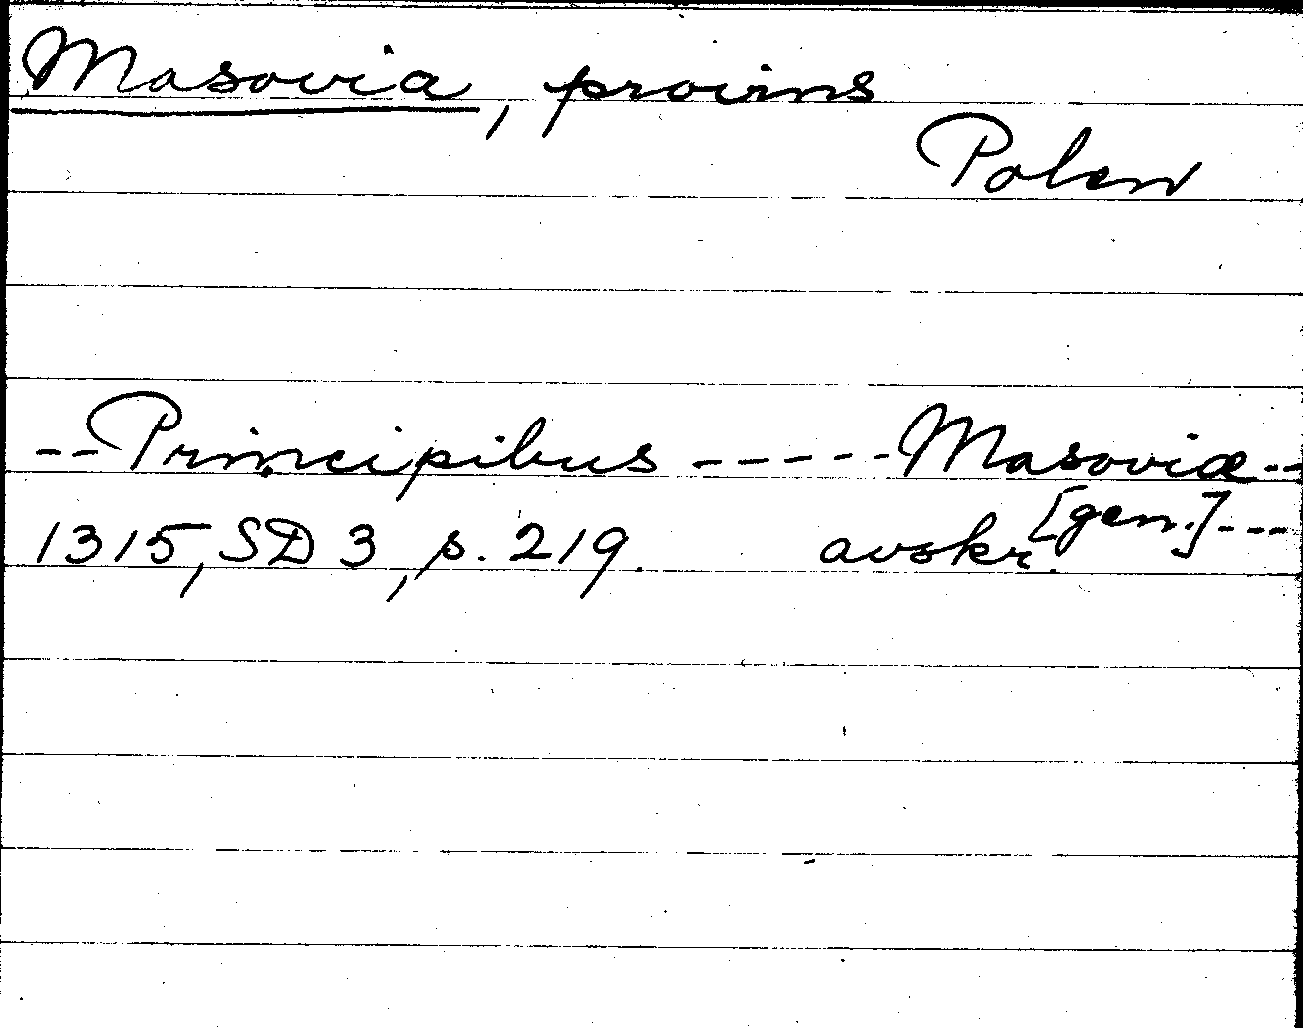 Masovia, provins
Polen
--Principibus -----Masoviæ--
[gen.]---
1315, SD 3, p. 219. avskr.